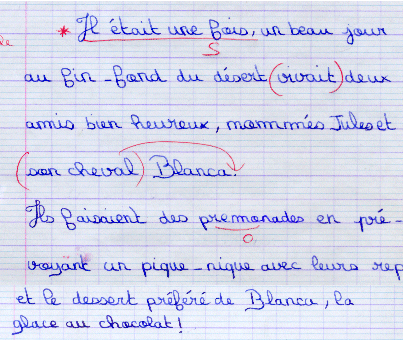 * Il était une fois, un beau jour
S
au fin-fond du désert (vivait) deux
amis bien heureux, nommés Jules et
(son cheval) Blanca.
Ils faisaient des premonades en pré-
o
voyant un pique-nique avec leurs rep
et le dessert préféré de Blanca, la
glace au chocolat!